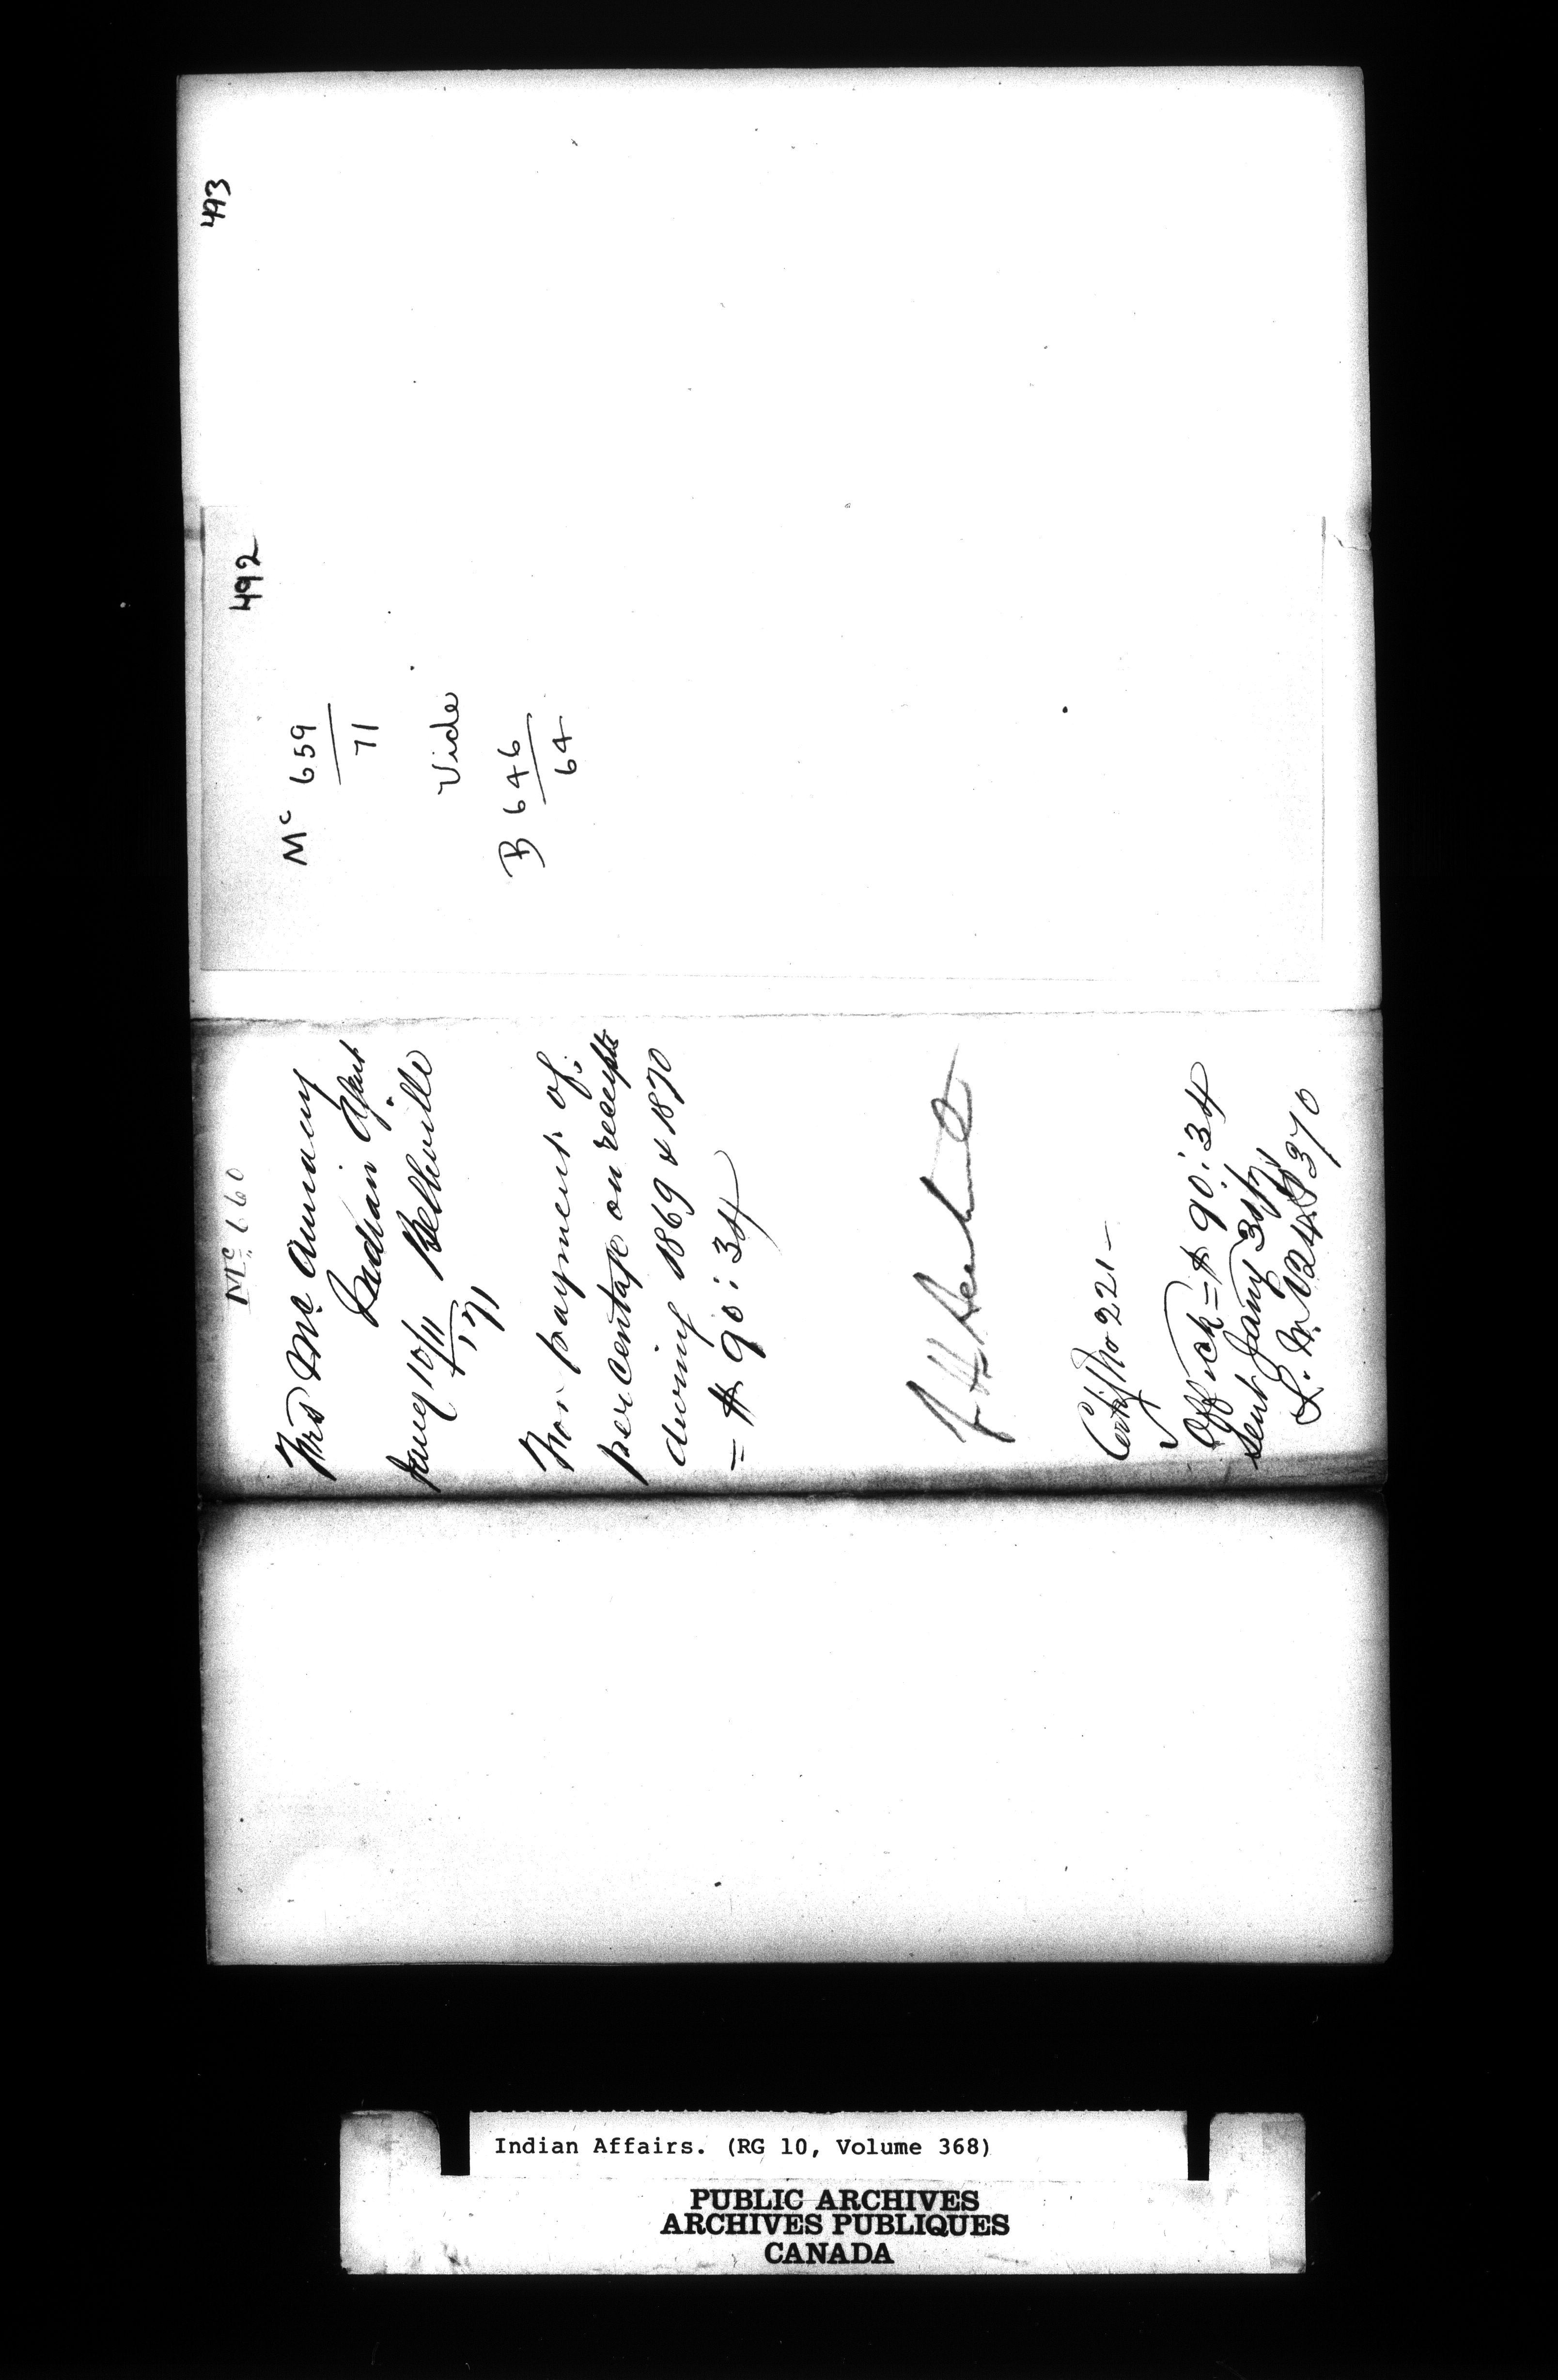 493
492
Mc 659
71
Vide
B 646
64
Mc. 660
Mc Annany
Indian Agent
Jany 10/11 Belleville
1871
For payment of
percentage on receipts
during 1869 & 1870
= $ 90:34
Certif No 221 –
Off. ck = $ 90:34
sent Jany 31st/71
Indian Affairs. (RG 10, Volume 368)
PUBLIC ARCHIVES
ARCHIVES PUBLIQUES
CANADA